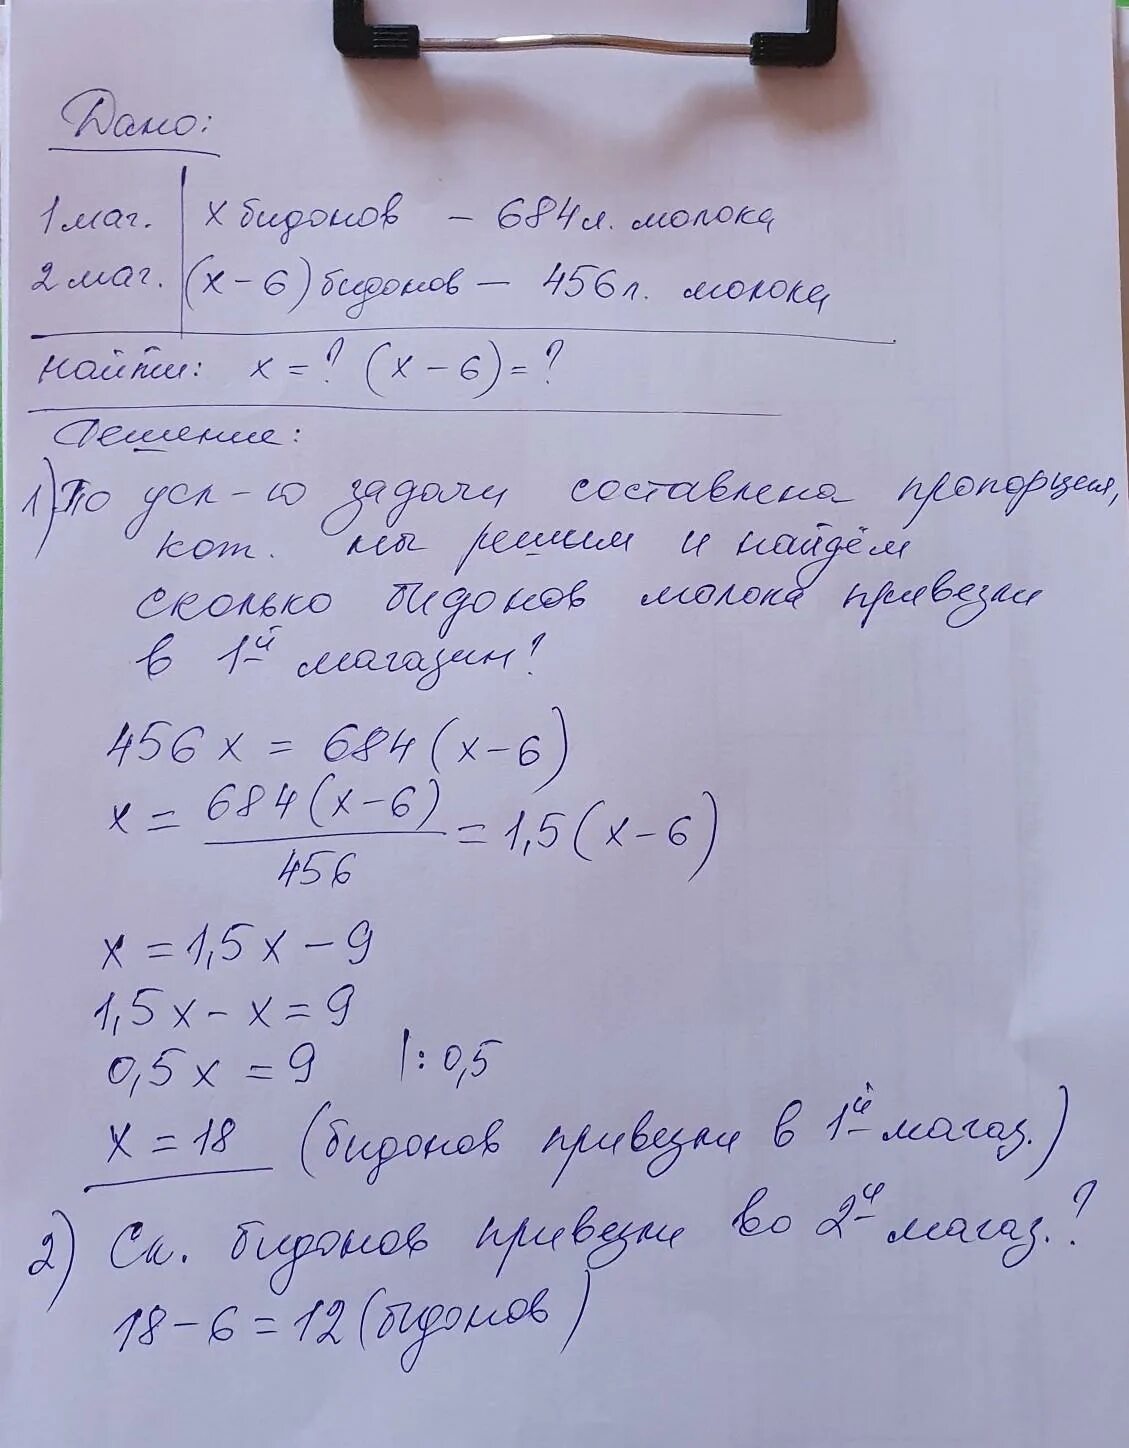 Дано:
1 маг. | х бидонов – 684 л. молока
2 маг. | (х – 6) бидонов – 456 л. молока
найти: х = ? (х – 6) = ?
Решение:
1) По усл-ю задачи составлена пропорция,
кот. мы решим и найдём
сколько бидонов молока привезли
в 1й магазин?
456 х = 684 (х – 6)
х = 684 (х – 6) / 456 = 1,5 (х – 6)
х = 1,5 х – 9
1,5 х – х = 9
0,5 х = 9 |: 0,5
х = 18 (бидонов привезли в 1й магаз.)
2) Ск. бидонов привезли во 2й магаз.?
18 – 6 = 12 (бидонов)